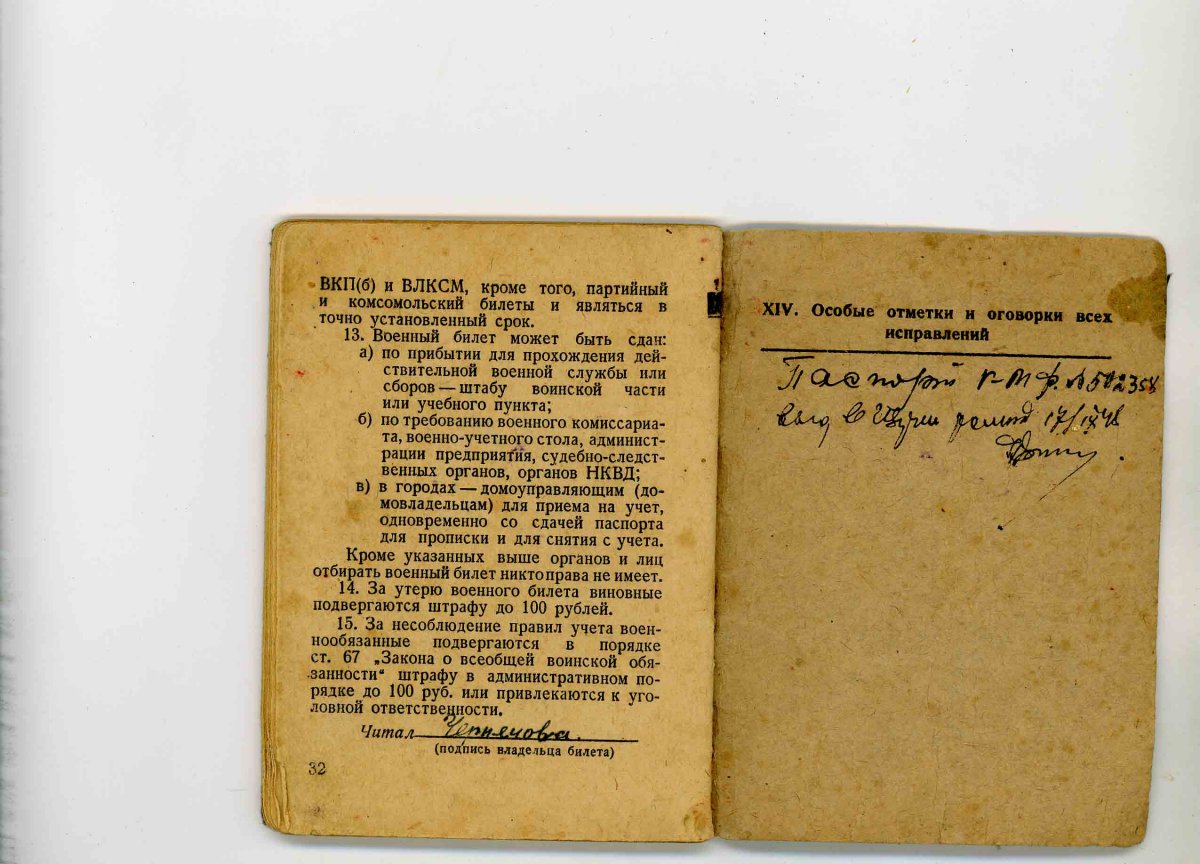 ВКП(б) и ВЛКСМ, кроме того, партийный
и комсомольский билеты и являться в
точно установленный срок.
13. Военный билет может быть сдан:
а) по прибытии для прохождения дей-
ствительной военной службы или
сборов — штабу воинской части
или учебного пункта;
б) по требованию военного комиссариа-
та, военно-учетного стола, админист-
рации предприятия, судебно-следст-
венных органов, органов НКВД;
в) в городах — домоуправляющим (до-
мовладельцам) для приема на учет,
одновременно со сдачей паспорта
для прописки и для снятия с учета.
Кроме указанных выше органов и лиц
отбирать военный билет никто права не имеет.
14. За утерю военного билета виновные
подвергаются штрафу до 100 рублей.
15. За несоблюдение правил учета воен-
нообязанные подвергаются в порядке
ст. 67 „Закона о всеобщей воинской обя-
занности“ штрафу в административном по-
рядке до 100 руб. или привлекаются к уго-
ловной ответственности.
Читал
(подпись владельца билета)
32
XIV. Особые отметки и оговорки всех
исправлений
Паспорт